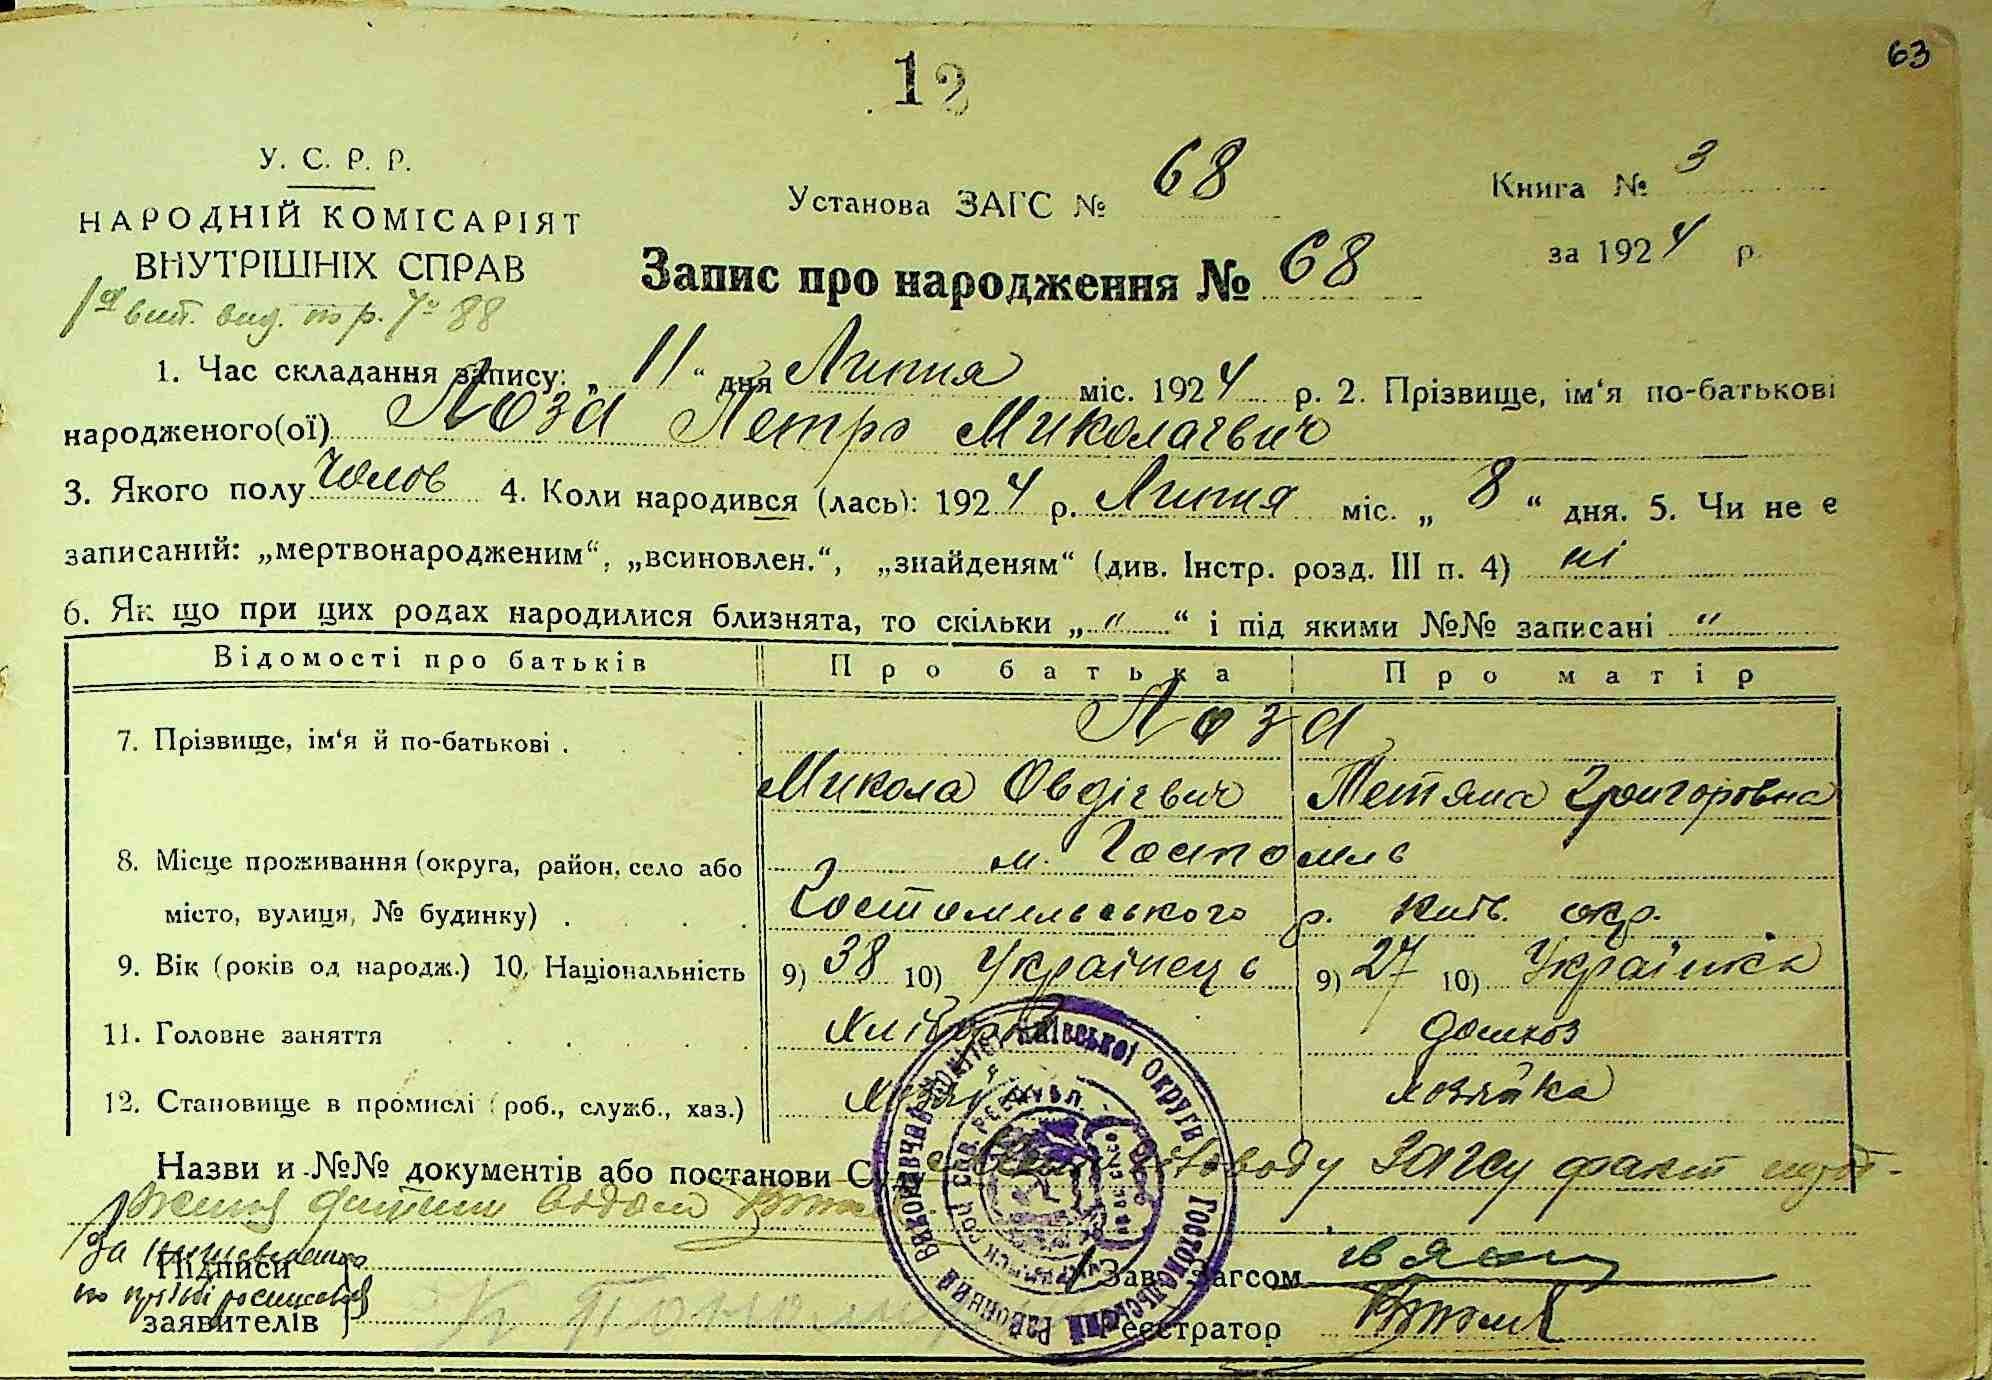 63
12
У. С. Р. Р.
НАРОДНІЙ КОМІСАРІЯТ
ВНУТРІШНІХ СПРАВ
Установа ЗАГС № 68
Книга № 3
за 1924 р.
Запис про народження № 68
1. Час складання запису: „ 11 “ дня Липня міс. 1924 р. 2. Прізвище, ім‘я по-батькові
народженого(ої) Лоза Петро Миколаєвич
3. Якого полу чолов 4. Коли народився (лась): 1924 р. Липня міс. „ 8 “ дня. 5. Чи не є
записаний: „мертвонародженим“, „всиновлен.“, „знайденям“ (див. Інстр. розд. III п. 4) ні
6. Як що при цих родах народилися близнята, то скільки „ “ “ і під якими №№ записані “
Відомості про батьків Про батька Про матір
7. Прізвище, ім‘я й по-батькові . Лоза
Микола Овдієвич Тетяна Григоровна
8. Місце проживання (округа, район, село або м. Гостомель
місто, вулиця, № будинку) . Гостомельського р. Київ. окр.
9. Вік (років од народж.) 10. Національність 9) 38 10) Українець 9) 27 10) Українка
11. Головне заняття Хлібороб домхоз
12. Становище в промислі (роб., служб., хаз.) хозяйка
Назви и №№ документів або постанови Загсу факт
дитини
За
Підписи
заявителів
Зав. Загсом
Реєстратор
Районний Виконавчий Комітет Київської Округи Гостомельський